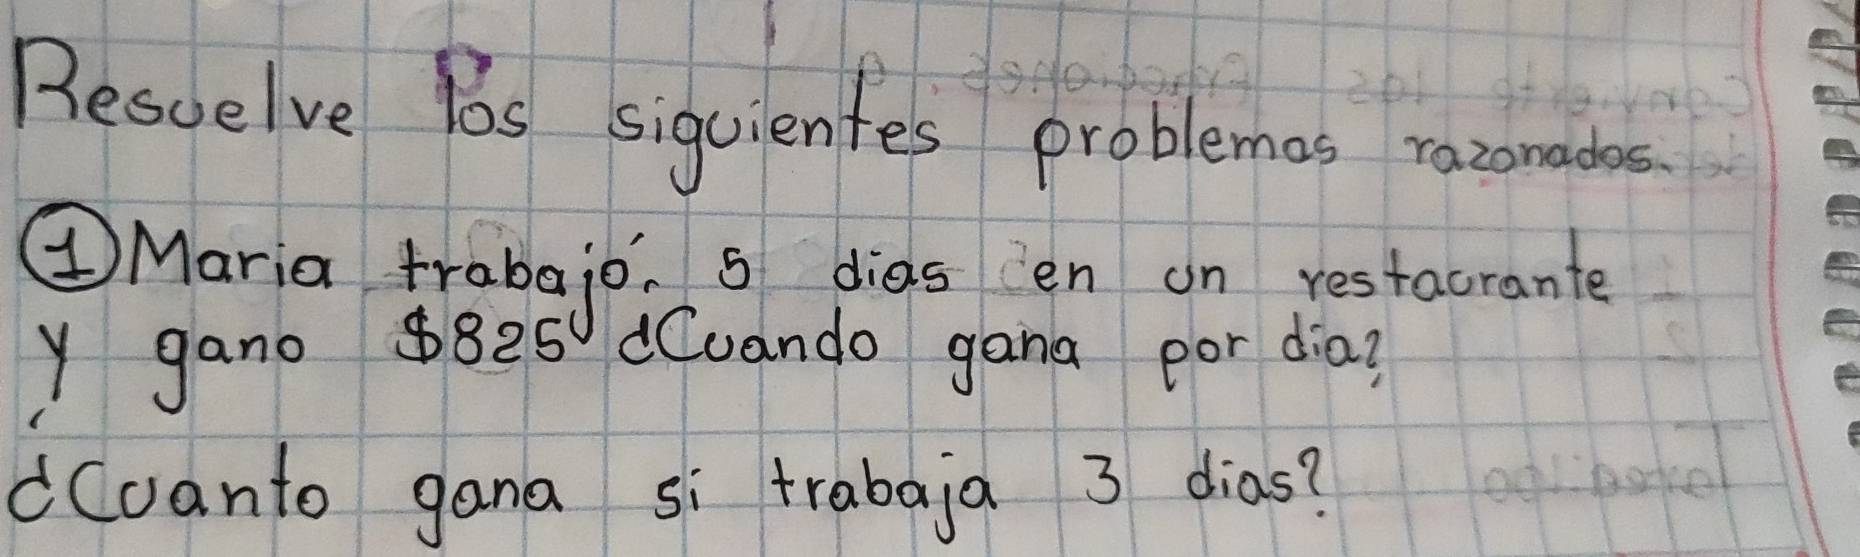 Resuelve los siguientes problemas razonados.
① Maria trabajó. 5 dias en un restaurante
y gano $825 ¿Cuando gana por dia?
¿Cuanto gana si trabaja 3 dias?